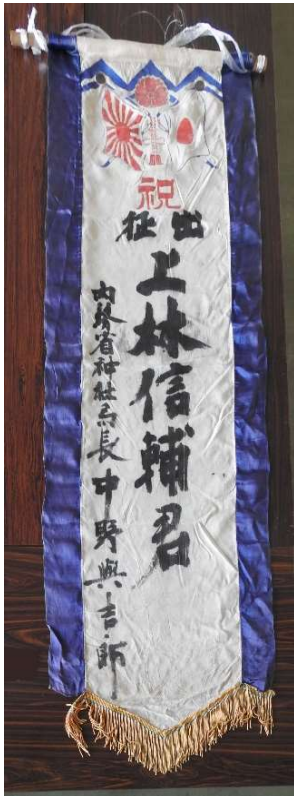 祝
出征
上林信輔君
内務省神社局長 中野與吉郎